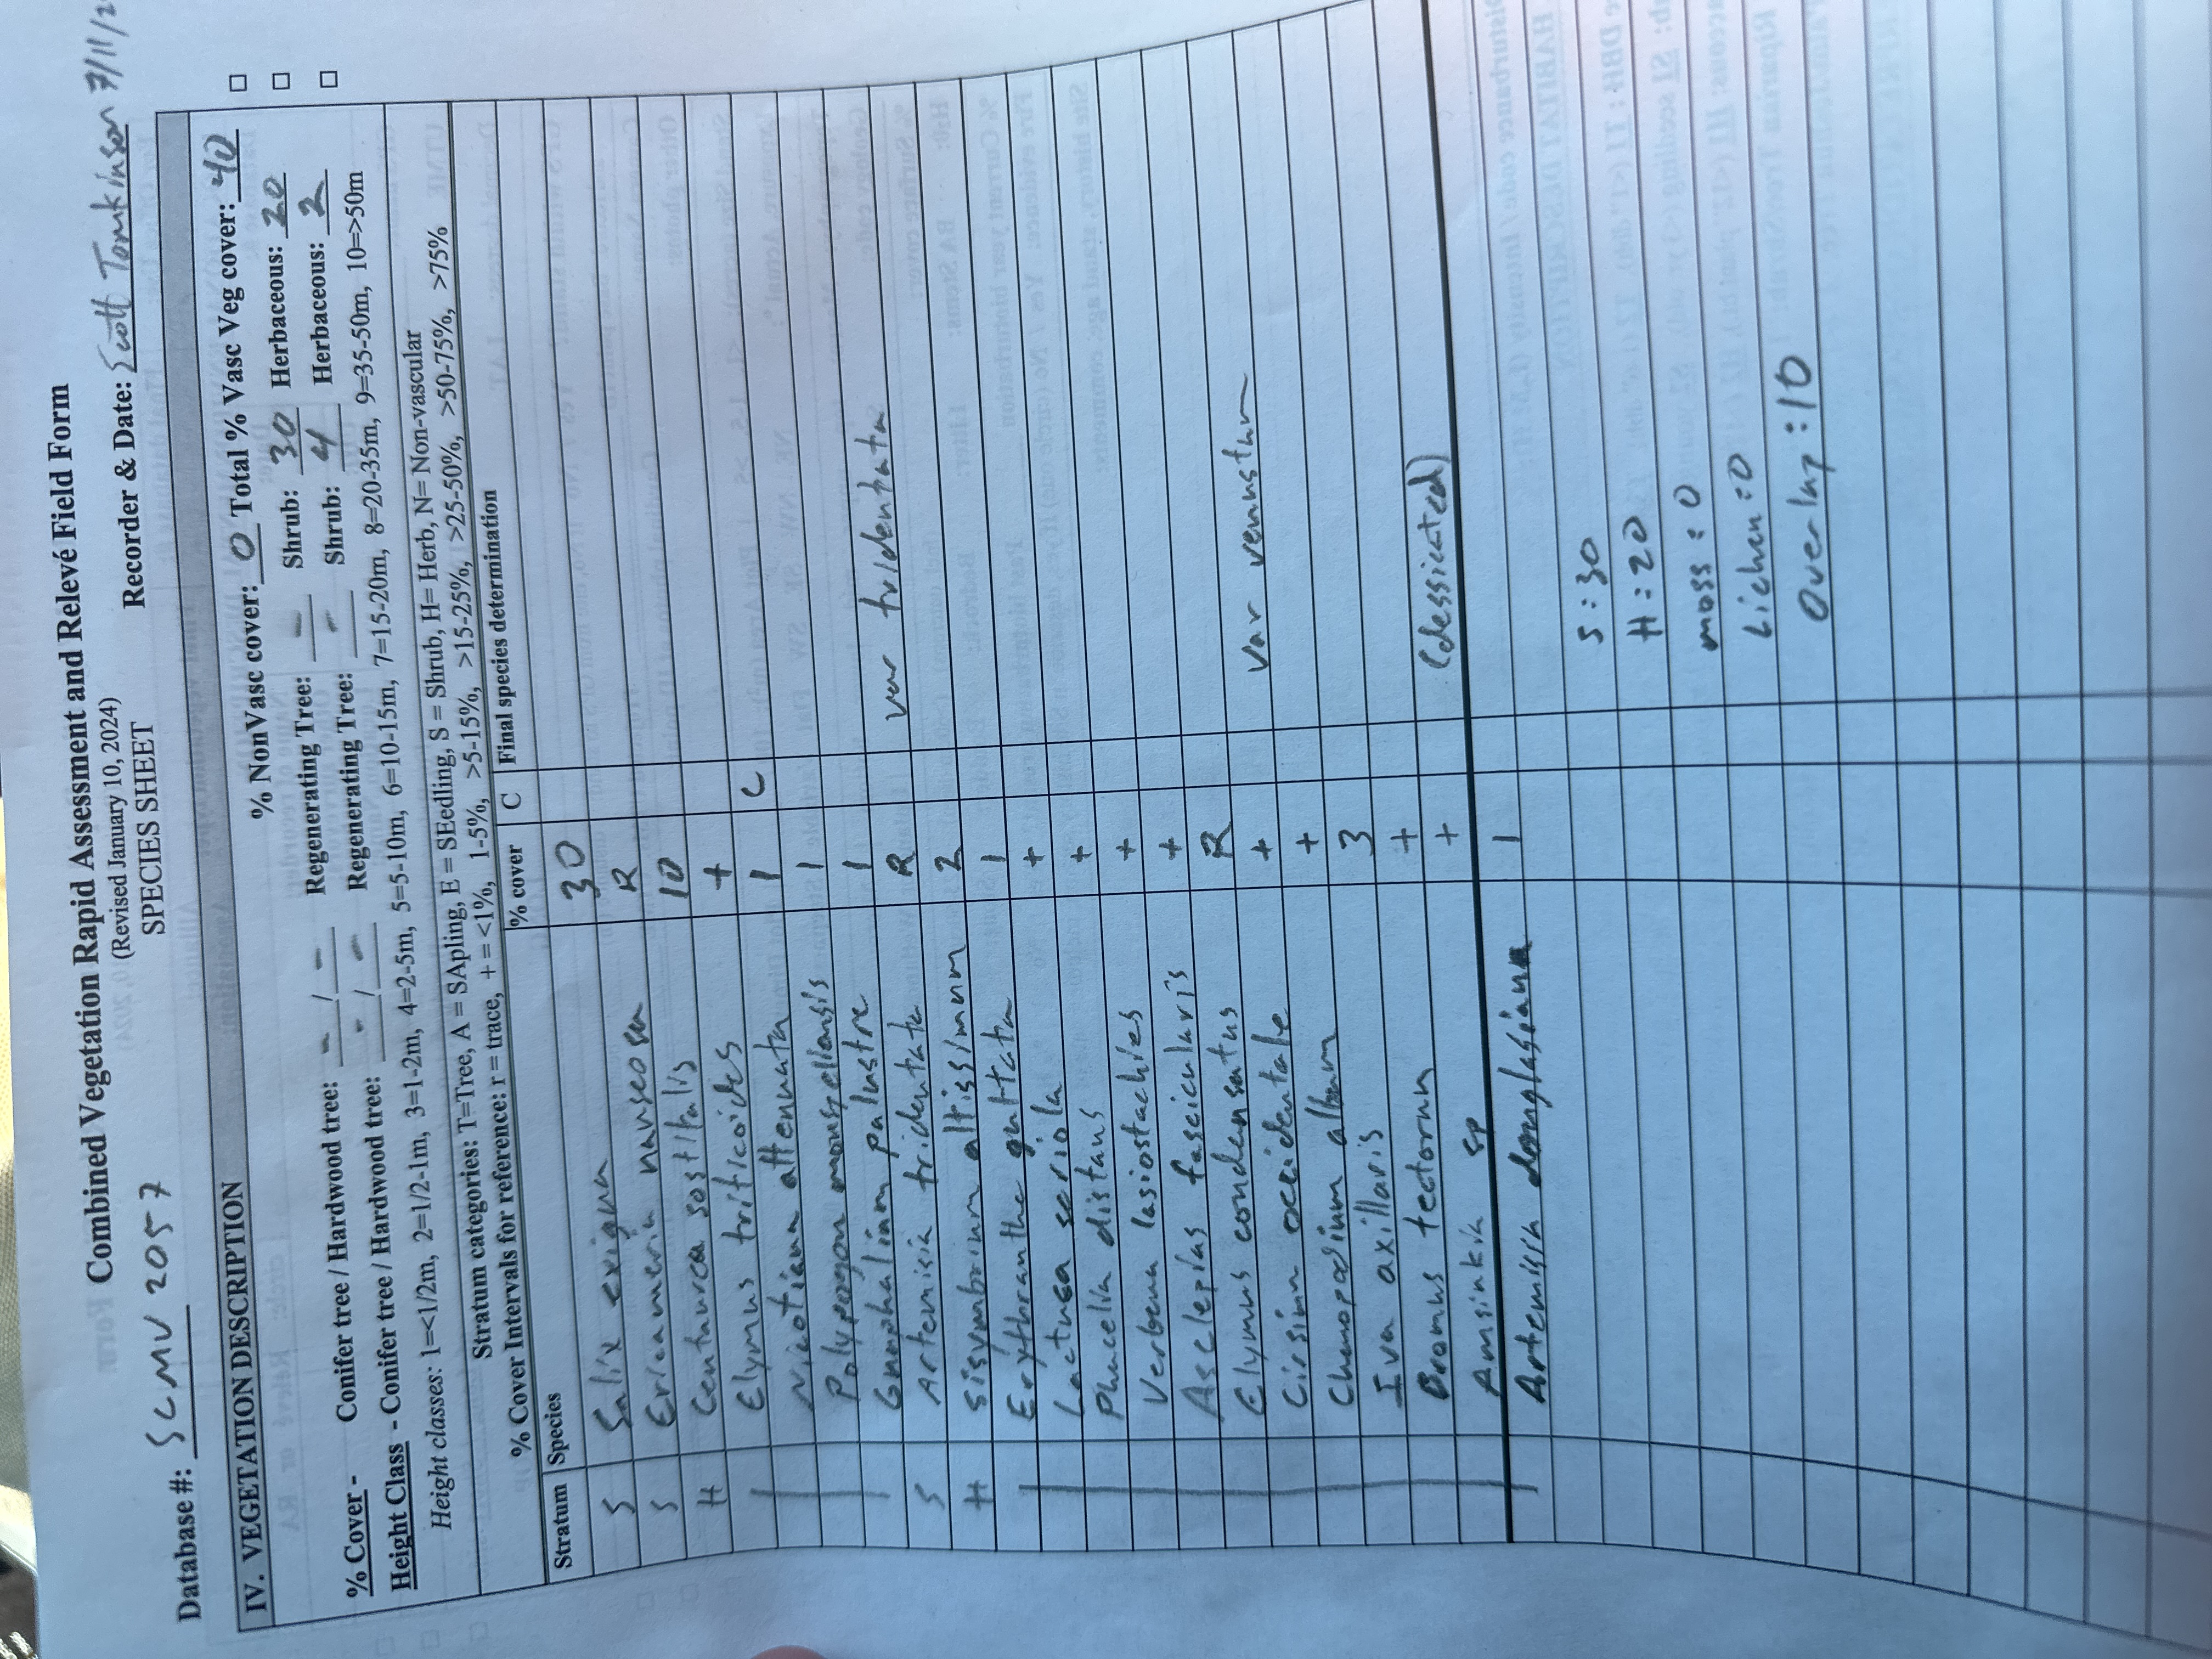 Combined Vegetation Rapid Assessment and Relevé Field Form
(Revised January 10, 2024)
SPECIES SHEET
Database #: SCMV 2057 Recorder & Date: Scott Tomkinson 7/11/2
IV. VEGETATION DESCRIPTION
% NonVasc cover: 0 Total % Vasc Veg cover: 40
% Cover - Conifer tree / Hardwood tree: - / - Regenerating Tree: - Shrub: 30 Herbaceous: 20
Height Class - Conifer tree / Hardwood tree: - / - Regenerating Tree: - Shrub: 4 Herbaceous: 2
Height classes: 1=<1/2m, 2=1/2-1m, 3=1-2m, 4=2-5m, 5=5-10m, 6=10-15m, 7=15-20m, 8=20-35m, 9=35-50m, 10=>50m
Stratum categories: T=Tree, A = SApling, E = SEedling, S = Shrub, H= Herb, N= Non-vascular
% Cover Intervals for reference: r = trace, + = <1%, 1-5%, >5-15%, >15-25%, >25-50%, >50-75%, >75%
Stratum Species % cover C Final species determination
S Salix exigua 30
S Ericameria nauseosa R
H Centaurea sostitalis 10
Elymus triticoides +
Nicotiana attenuata 1 C
Polypogon monspeliensis 1
Gnaphalium palustre 1
S Artemisia tridentata R var tridentata
H Sisymbrium altissimum 2
Erythranthe guttata 1
Lactuca seriola +
Phacelia distans +
Verbena lasiostachies +
Asclepias fascicularis +
Elymus condensatus R
Cirsium occidentale + var venustum
Chenopodium album +
Iva axillaris 3
Bromus tectorum +
Amsinkia sp + (dessicated)
Artemisia douglasiana 1
S: 30
H: 20
moss: 0
Lichen: 0
Overlap: 10